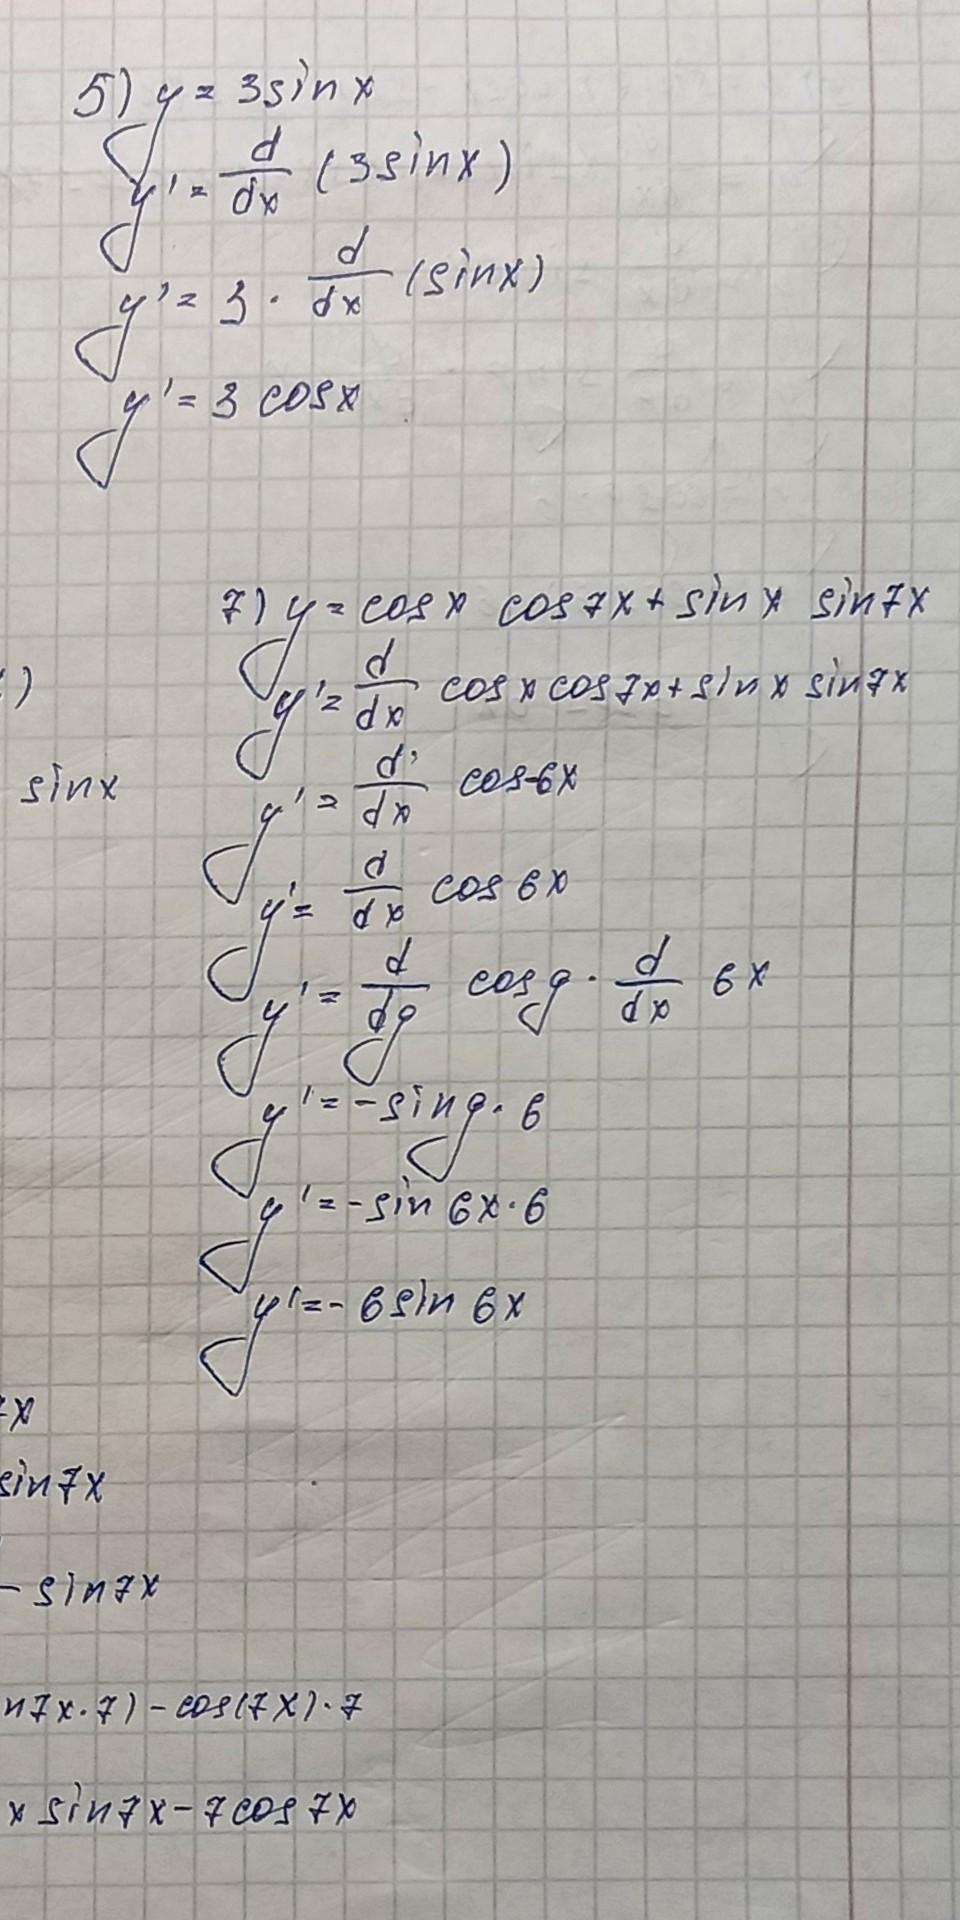 5) y = 3sinx
y' = d/dx (3sinx)
y' = 3 · d/dx (sinx)
y' = 3 cosx
7) y = cosx cos7x + sinx sin7x
)
y' = d/dx cosx cos7x + sinx sin7x
sinx
y' = d/dx cos-6x
y' = d/dx cos6x
y' = d/dg cosg · d/dx 6x
y' = -sing · 6
y' = -sin6x · 6
y' = -6sin6x
7x
sin7x
- sin7x
n7x·7) - cos(7x)·7
x sin7x - 7cos7x